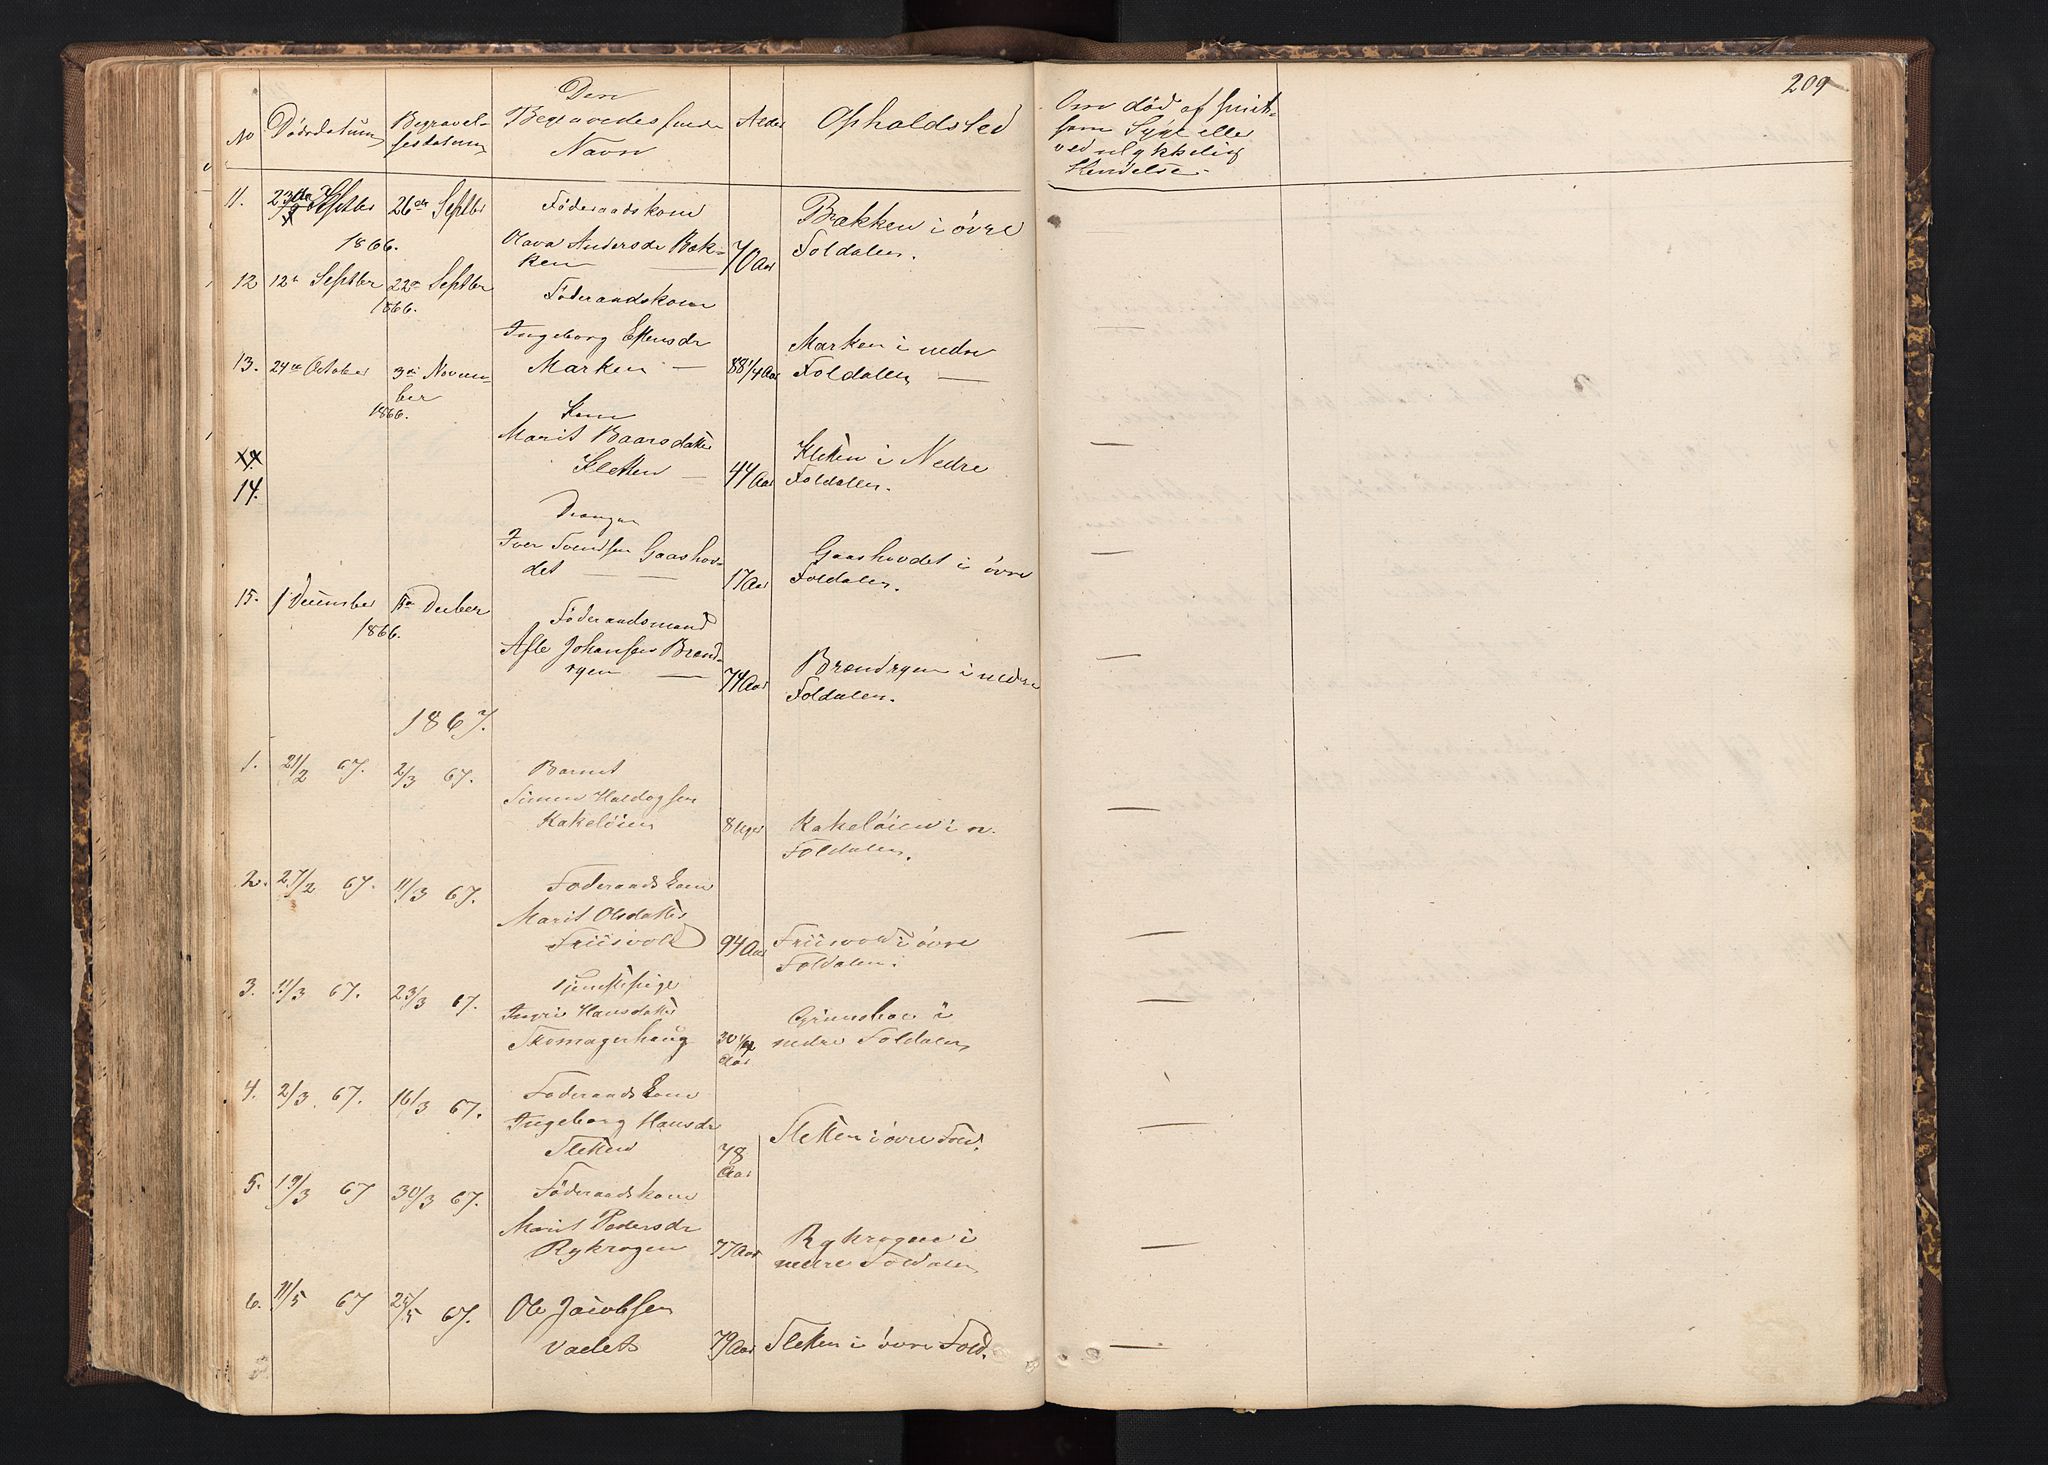 209
No Dödsdatum Begravel-
sesdatum
Den
Begravedes fulde
Navn
Alder
Opholdsted
Om död af smit-
som Syge eller
ved ulykkelig
Hendelse.
11. 23de Septbr 26de Septbr Föderaadskone
1866.
Bækken i övre
Olava Andersdr Bæk-
ken 70 Aar Foldalen.
12 12te Septbr 22de Septbr
1866.
Föderaadskone
Ingeborg Estensdr
Marken 88 1/4 Aar
Marken i nedre
Foldalen
13. 24de October 3die Novem-
ber
1866.
Kone
Marit Baarsdatter
Kletten 44 Aar
Kletten i Nedre
Foldalen.
14.
Drengen
Iver Svendsen Gaashov-
det 17 Aar
Gaashovdet i övre
Foldalen.
15. 1 December 15de Decber
1866.
Föderaadsmand
Johansen Brænd-
ryen 74 Aar
Brændryen i nedre
Foldalen.
1867.
1. 21/2 67. 2/3 67. Barnet
Simen Haldogsen
Kakelöien 8 Uger
Kakelöien i n.
Foldalen.
2. 27/2 67. 11/3 67. Foderaadskone
Marit Olsdatter
Friisvold 94 Aar
Friisvold i övre
Foldalen.
3. 11/3 67. 23/3 67. Tjenestepige
Ingri Hansdatter
Skomagerhaug 30 Aar
Grimsboe i
nedre Foldalen
4. 2/3 67. 16/3 67. Foderaadskone
Ingeborg Hansdr
Sletten 78
Aar
Sletten i övre Fold.
5. 19/3 67 30/3 67. Föderaadskone
Marit Pedersdr
Rykrogen 77 Aar
Rykrogen i
nedre Foldalen
6. 11/5 67 25/5 67. Ole Jacobsen
Vadet 79 Aar Sletten i övre Fold.